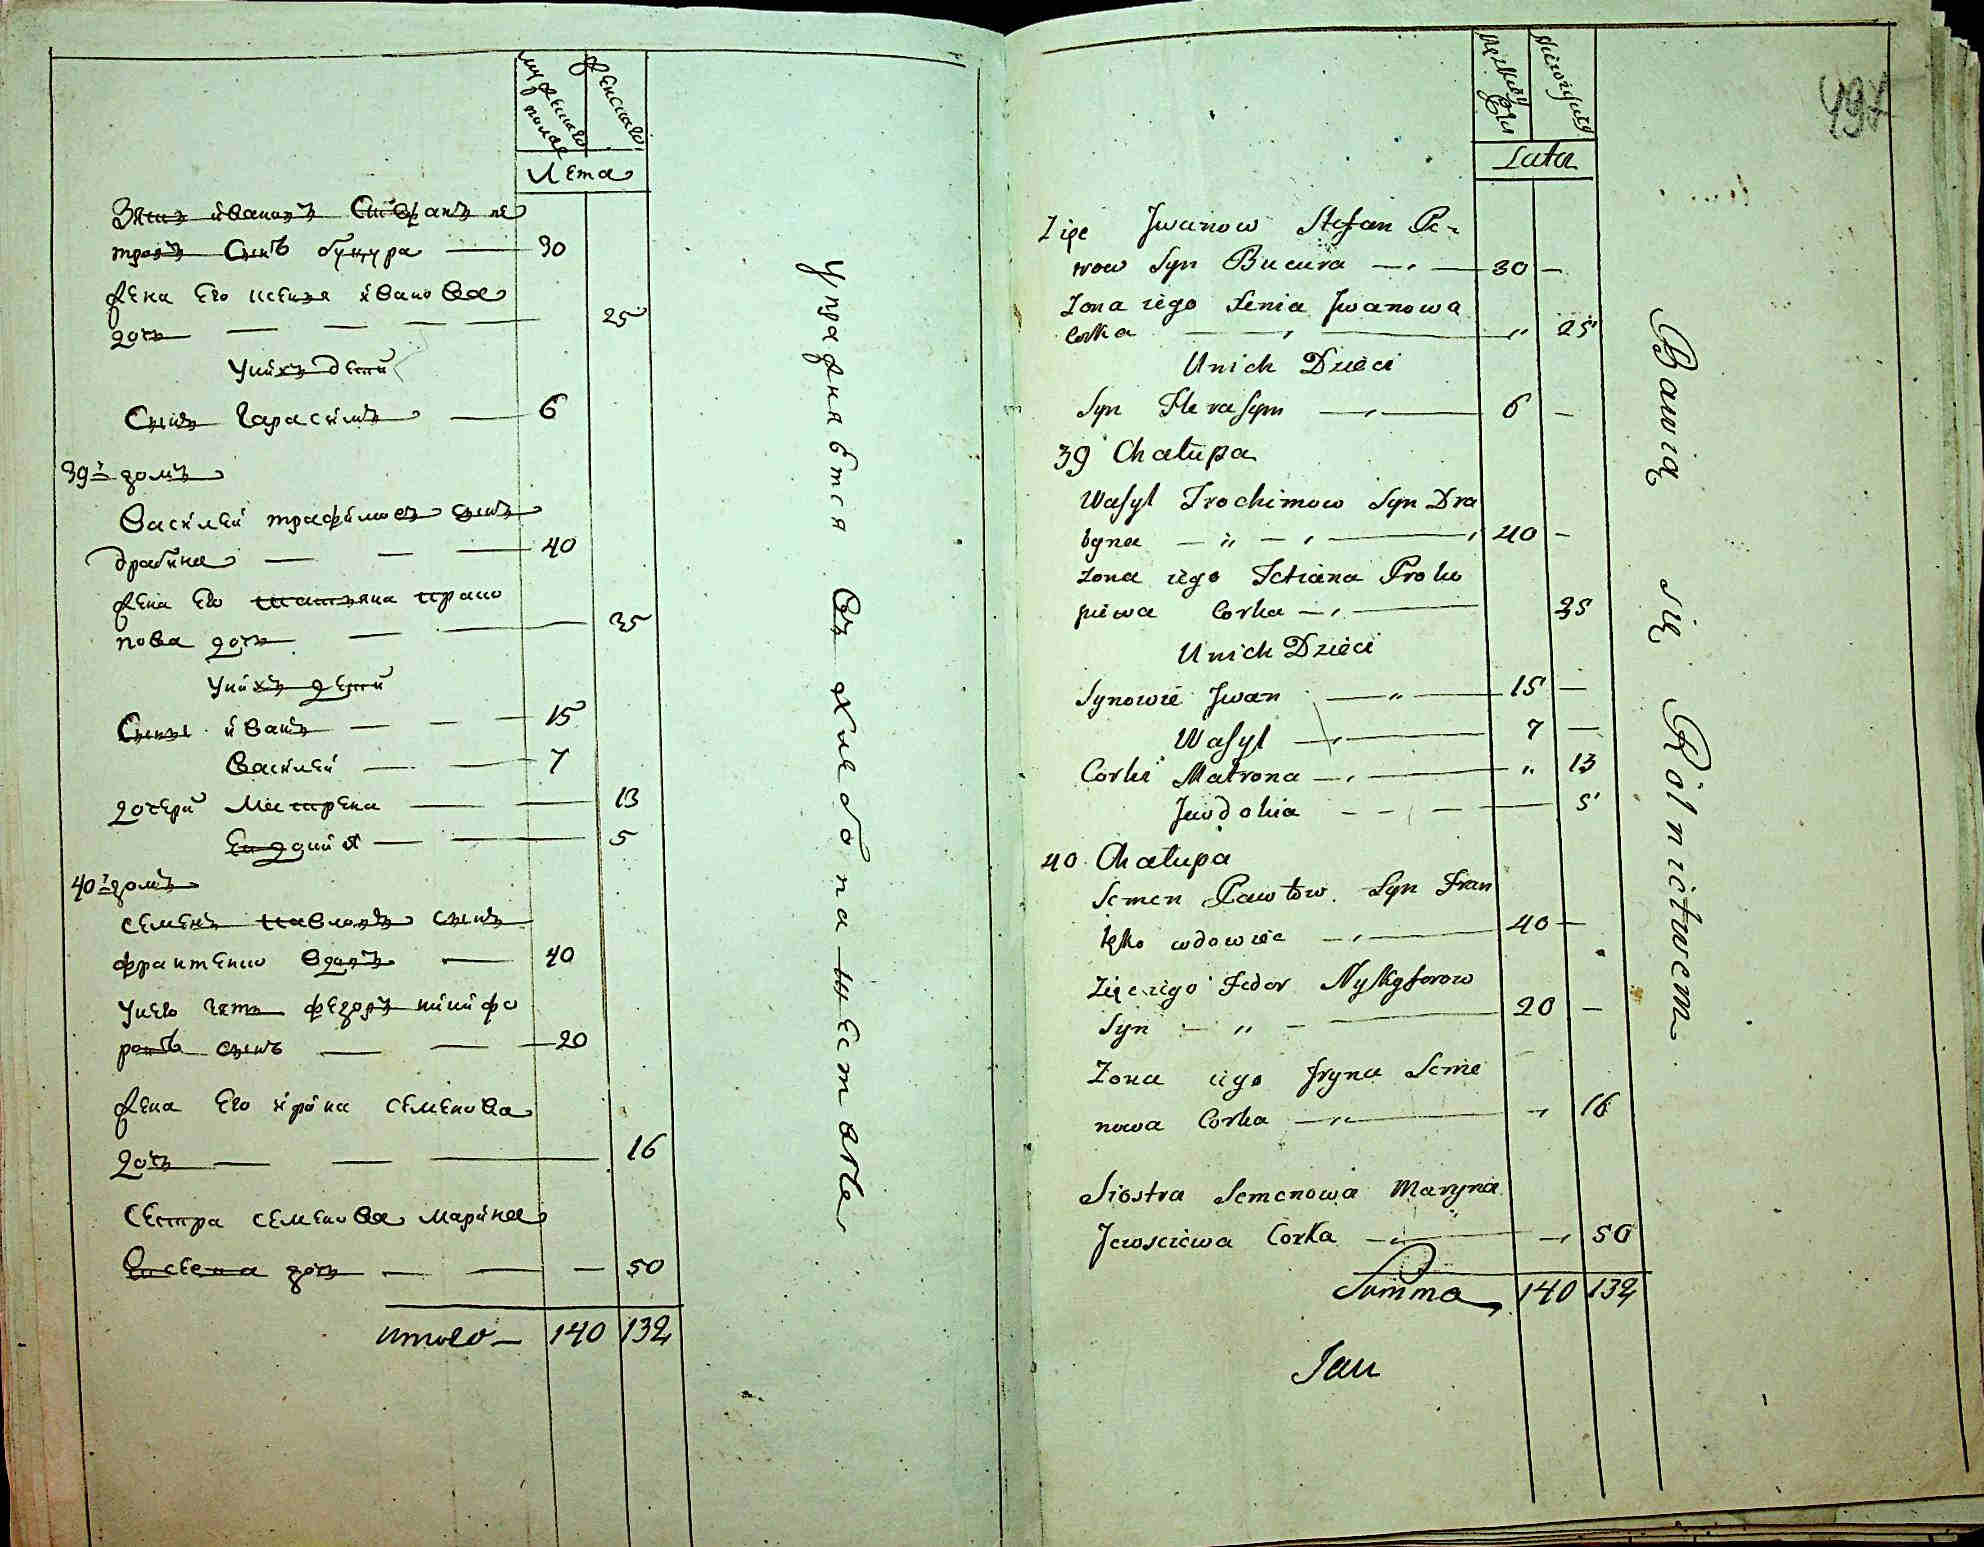 мужеска полае
женскаго
Лета
Зять ивановъ Стефанъ пе
тровъ Сынъ букура 30
Жена Его ксенья иванова
дочь 25
Унихъ дети
Сынъ Гарасимъ 6
39й домъ
Василей трафимовъ сынъ
драбина 40
Жена Его татьяна проко
пова дочь 35
Унихъ дети
Сыны иванъ 15
Василей 7
дочери Матрена 13
Евдокия 5
40й домъ
семенъ павловъ сынъ
франтенко вдовъ 40
Унего зять федоръ никифо
ровъ сынъ 20
Жена Его ирина семенова
дочь 16
сестра семенова марина
дочь 50
итого 140 132
Упражняются въ хлебопашестве
497
męzkiey
Lata
Zięć Jwanow Stefan Pe-
trow Syn Bucura 30
Zona iego Xenia Jwanowa
Corka 25
Unich Dzieci
Syn Herasym 6
39 Chałupa
Wasyl Trochimow Syn Dra
byna 40
Zona iego Tetiana Proko
piewa Corka 35
Unich Dzieci
Synowie Jwan 15
Wasyl 7
Corki Matrona 13
Jewdokia 5
40 Chałupa
Semen Pawłow Syn Fran
tęko wdowiec 40
Zięć iego Fedor Nykyforow
Syn 20
Zona iego Jryna Seme
nowa Corka 16
Siostra Semenowa Maryna
Jewsciewa Corka 50
Summa 140 132
Jan
Bawią się Rolnictwem